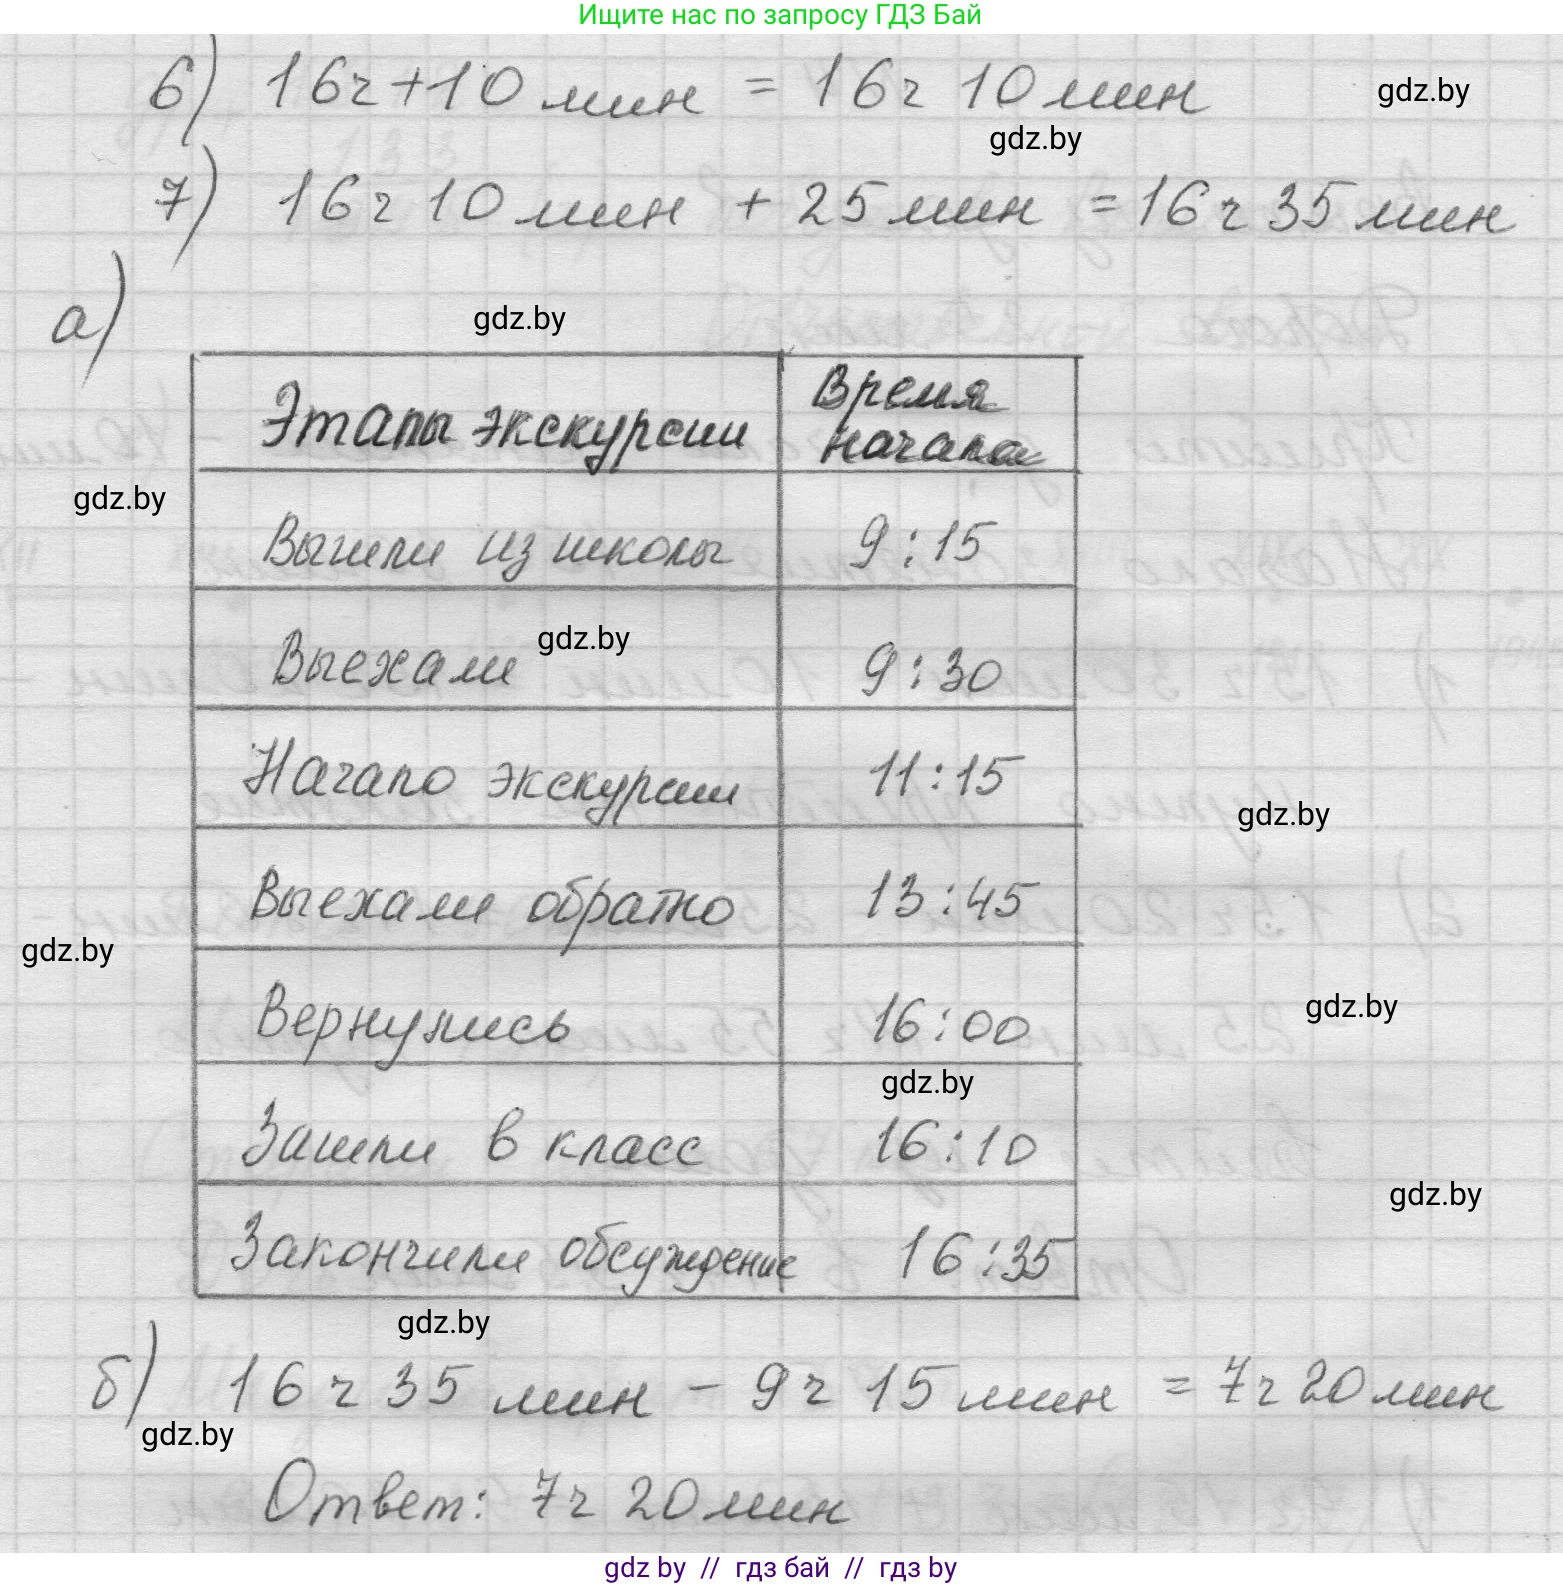 Ищите нас по запросу ГДЗ Бай
6) 16ч+10 мин = 16ч 10 мин
gdz.by
gdz.by
7) 16ч 10 мин + 25 мин = 16ч 35 мин
а)
gdz.by
Этапы экскурсии
Время
начала
gdz.by
Вышли из школы 9:15
gdz.by
Выехали 9:30
Начало экскурсии 11:15
gdz.by
Выехали обратно 13:45
gdz.by
Вернулись 16:00
gdz.by
gdz.by
Зашли в класс 16:10
gdz.by
Закончили обсуждение 16:35
gdz.by
б) 16 ч 35 мин - 9 ч 15 мин = 7ч 20 мин
gdz.by
Ответ: 7ч 20 мин
gdz by // гдз бай // гдз by